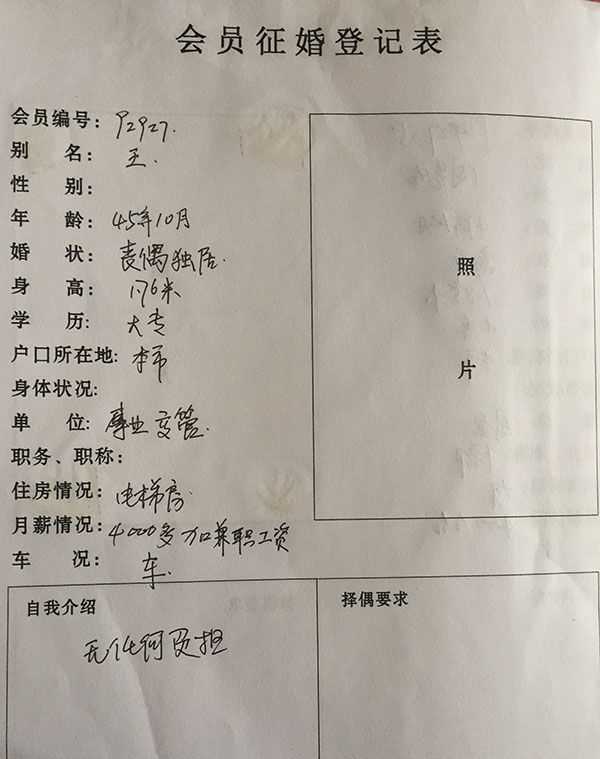 会员征婚登记表
会员编号: 92927.
别 名: 王.
性 别:
年 龄: 45年10月
婚 状: 丧偶独居.
身 高: 1.76米
学 历: 大专
户口所在地: 本市
身体状况:
单 位: 事业交管.
职务、职称:
住房情况: 电梯房.
月薪情况: 4000多 加兼职工资
车 况: 车.
照
片
自我介绍
无任何负担
择偶要求